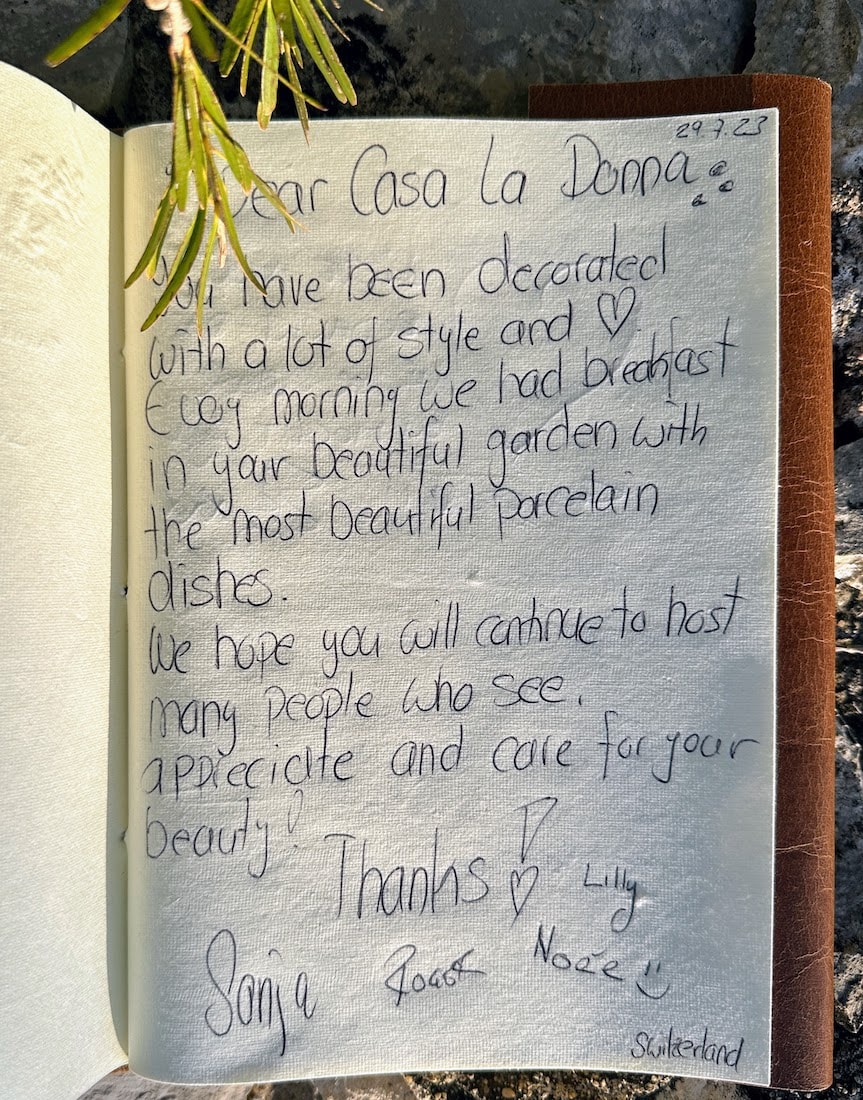 29.7.23
Dear Casa La Donna
You have been decorated
with a lot of style and ♡.
Every morning we had breakfast
in your beautiful garden with
the most beautiful porcelain
dishes.
We hope you will continue to host
many people who see,
appreciate and care for your
beauty!
Thanks
Lilly
Noée
Sonja
Switzerland